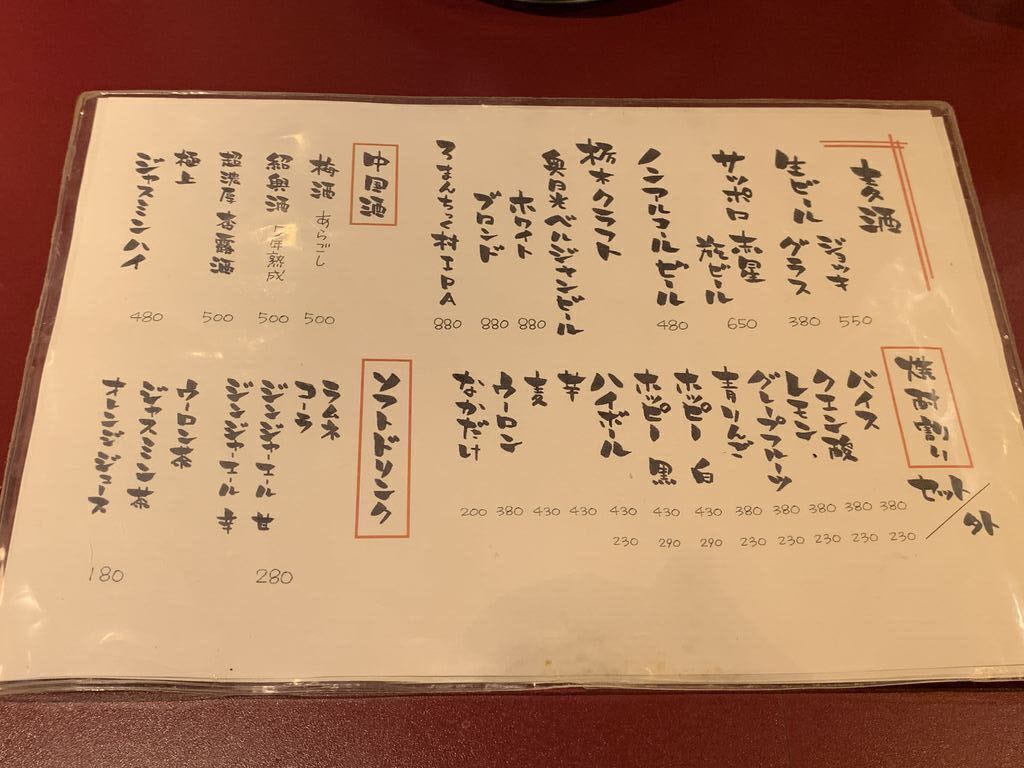 麦酒
生ビール ジョッキ 550
グラス 380
サッポロ 赤星
瓶ビール 650
ノンアルコールビール 480
栃木クラフト
奥日光ベルジャンビール
ホワイト 880
ブロンド 880
ろまんちっく村IPA 880
中国酒
梅酒 あらごし 500
紹興酒 5年熟成 500
超濃厚 杏露酒 500
極上
ジャスミンハイ 480
焼酎割り
セット/外
バイス 380 230
クエン酸 380 230
レモン 380 230
グレープフルーツ 380 230
青りんご 380 230
ホッピー 白 430 290
ホッピー 黒 430 290
ハイボール 430 230
芋 430
麦 430
ウーロン 380
なかだけ 200
ソフトドリンク
ラムネ
コーラ
ジンジャーエール 甘 280
ジンジャーエール 辛
ウーロン茶
ジャスミン茶
オレンジジュース 180